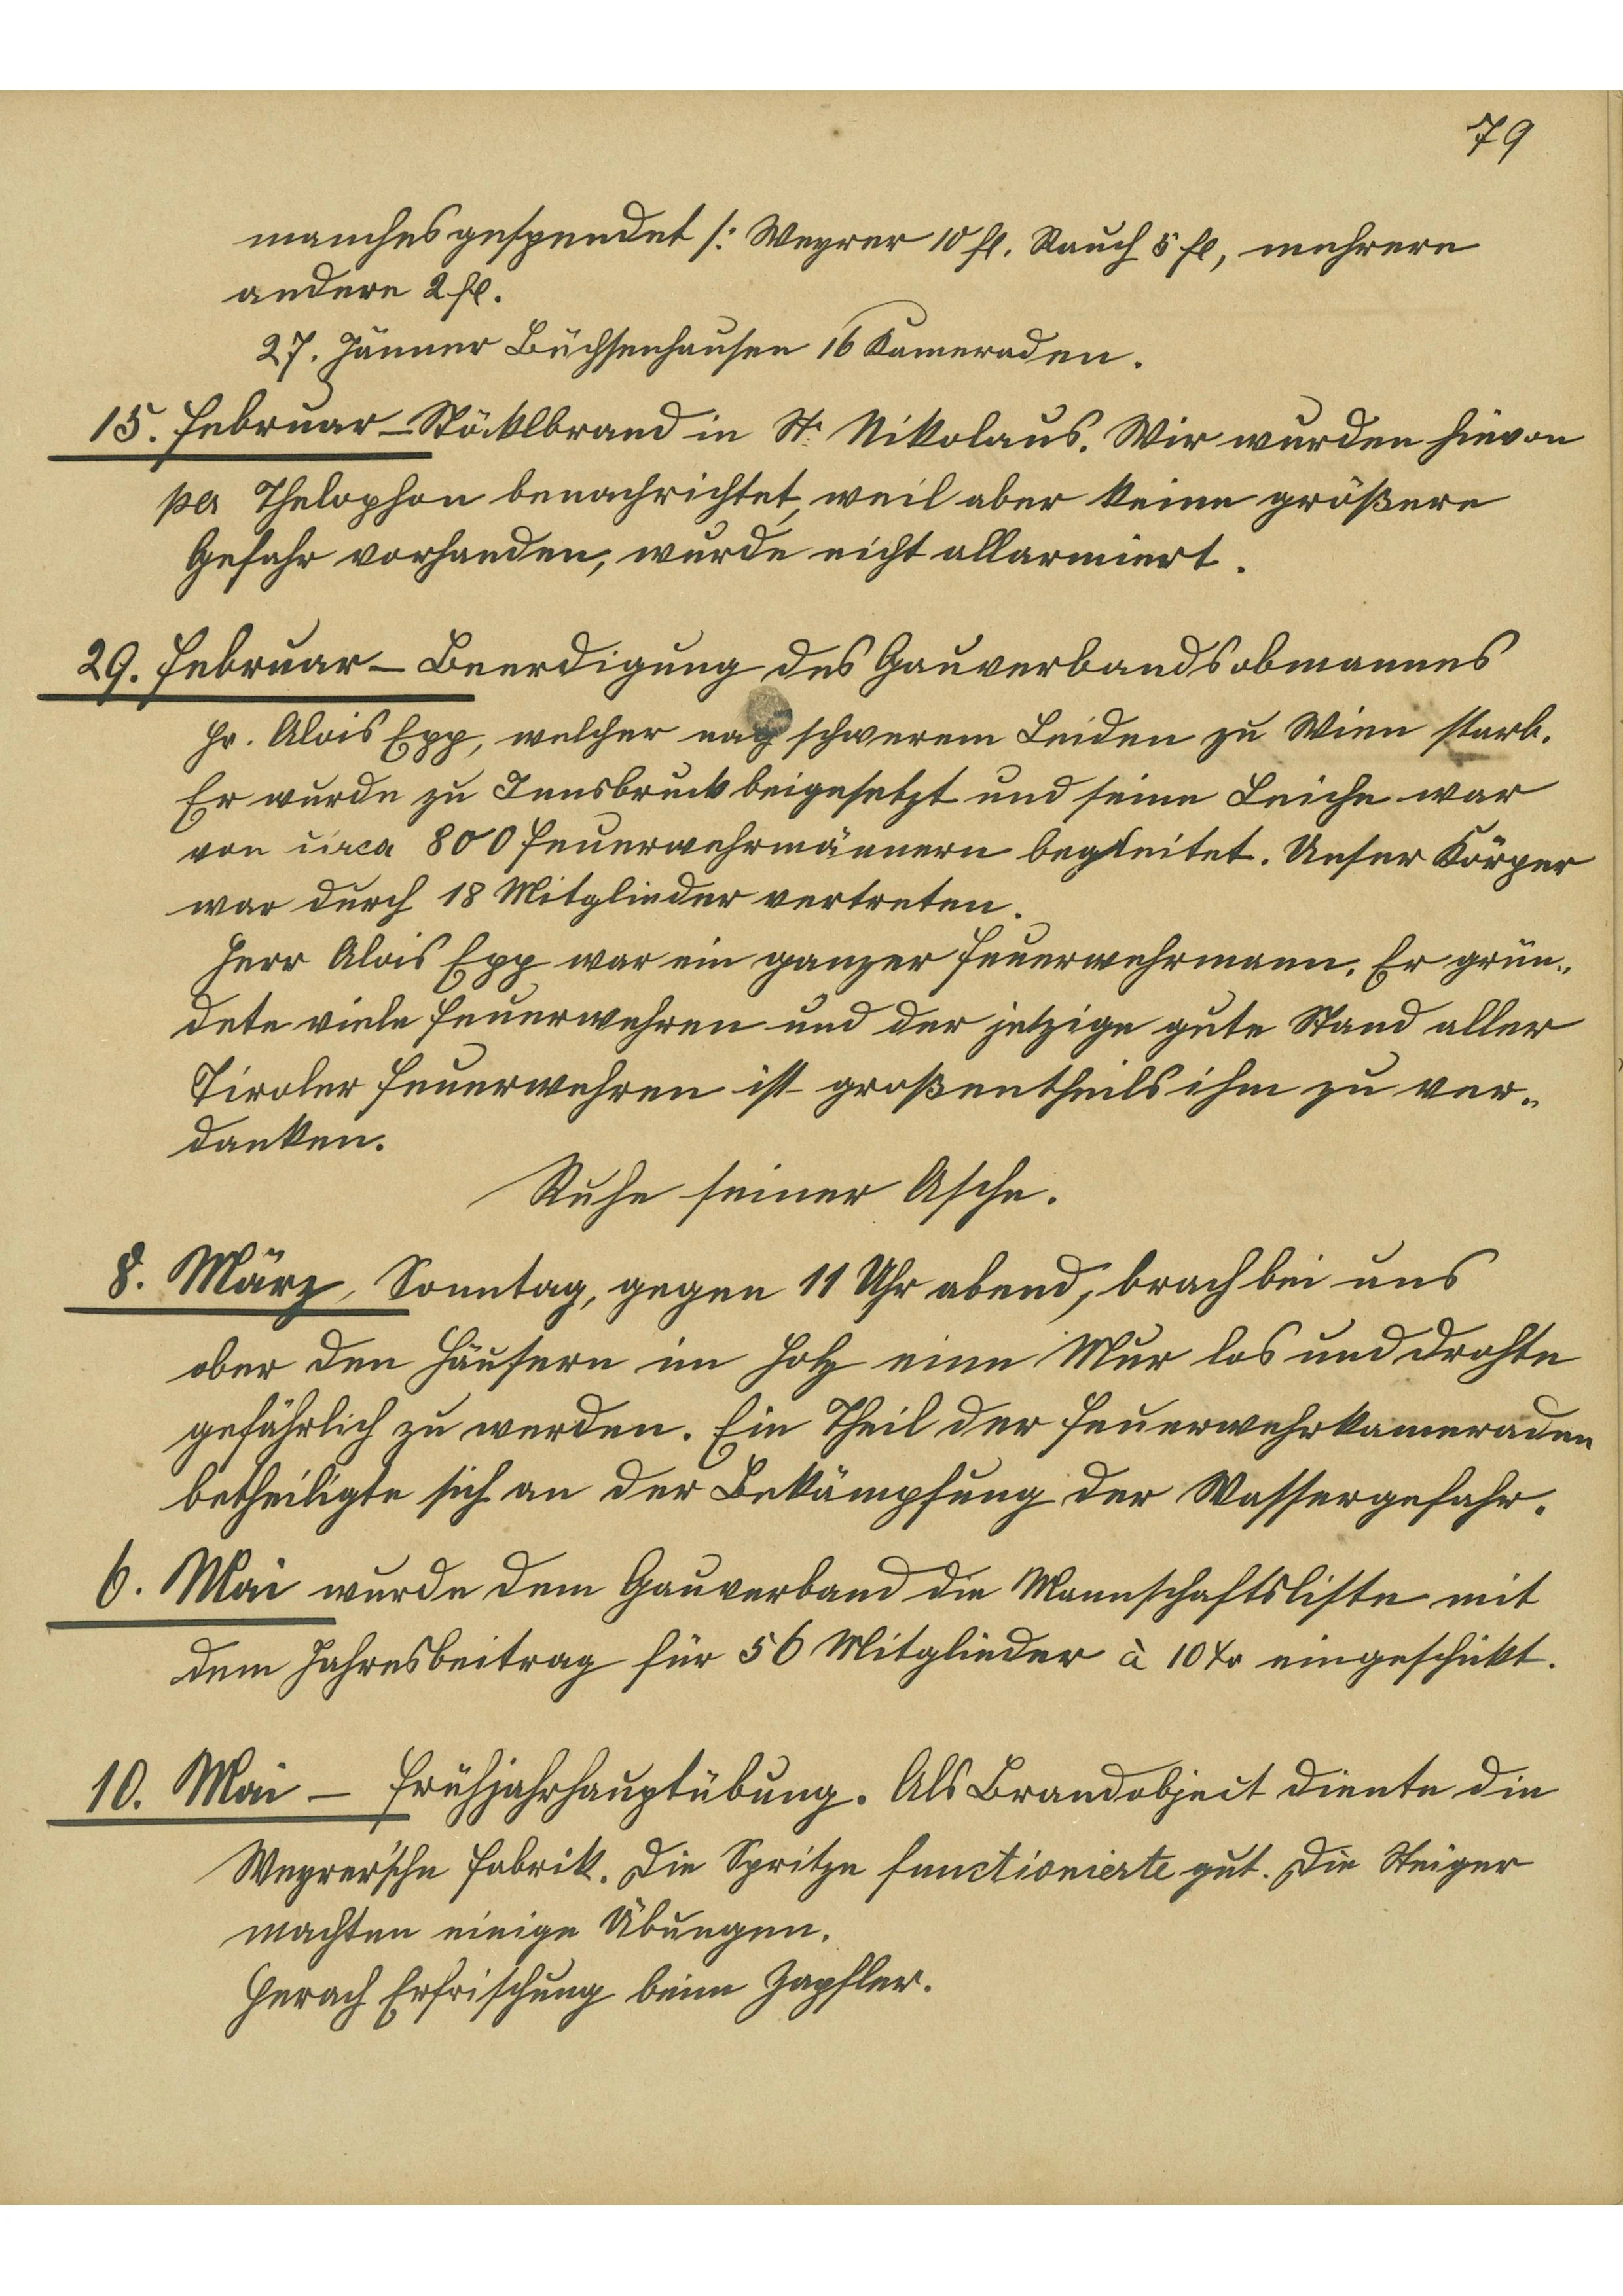 79
manches gespendet /: Weyrer 10 fl. Rauch 5 fl, mehrere
andere 2 fl.
27. Jänner Büchsenhausen 16 Kameraden.
15. Februar – Stöcklbrand in St. Nikolaus. Wir wurden hievon
per Thelophon benachrichtet, weil aber keine größere
Gefahr vorhanden, wurde nicht allarmiert.
29. Februar – Beerdigung des Gauverbandsobmannes
Hr. Alois Epp, welcher nach schwerem Leiden zu Wien starb.
Er wurde zu Innsbruck beigesetzt und seine Leiche war
von circa 800 Feuerwehrmännern begleitet. Unser Körper
war durch 18 Mitglieder vertreten.
Herr Alois Epp war ein ganzer Feuerwehrmann. Er grün-
dete viele Feuerwehren und der jetzige gute Stand aller
Tiroler Feuerwehren ist großentheils ihm zu ver-
danken.
Ruhe seiner Asche.
8. März, Sonntag, gegen 11 Uhr abend, brach bei uns
ober den Häusern im Holz eine Mur los und drohte
gefährlich zu werden. Ein Theil der Feuerwehrkameraden
betheiligte sich an der Bekämpfung der Wassergefahr.
6. Mai wurde dem Gauverband die Mannschaftsliste mit
dem Jahresbeitrag für 56 Mitglieder à 10 kr eingeschickt.
10. Mai – Frühjahrhauptübung. Als Brandobject diente die
Weyrer'sche Fabrik. Die Spritze functionierte gut. Die Steiger
machten einige Übungen.
Herach Erfrischung beim Zapfler.